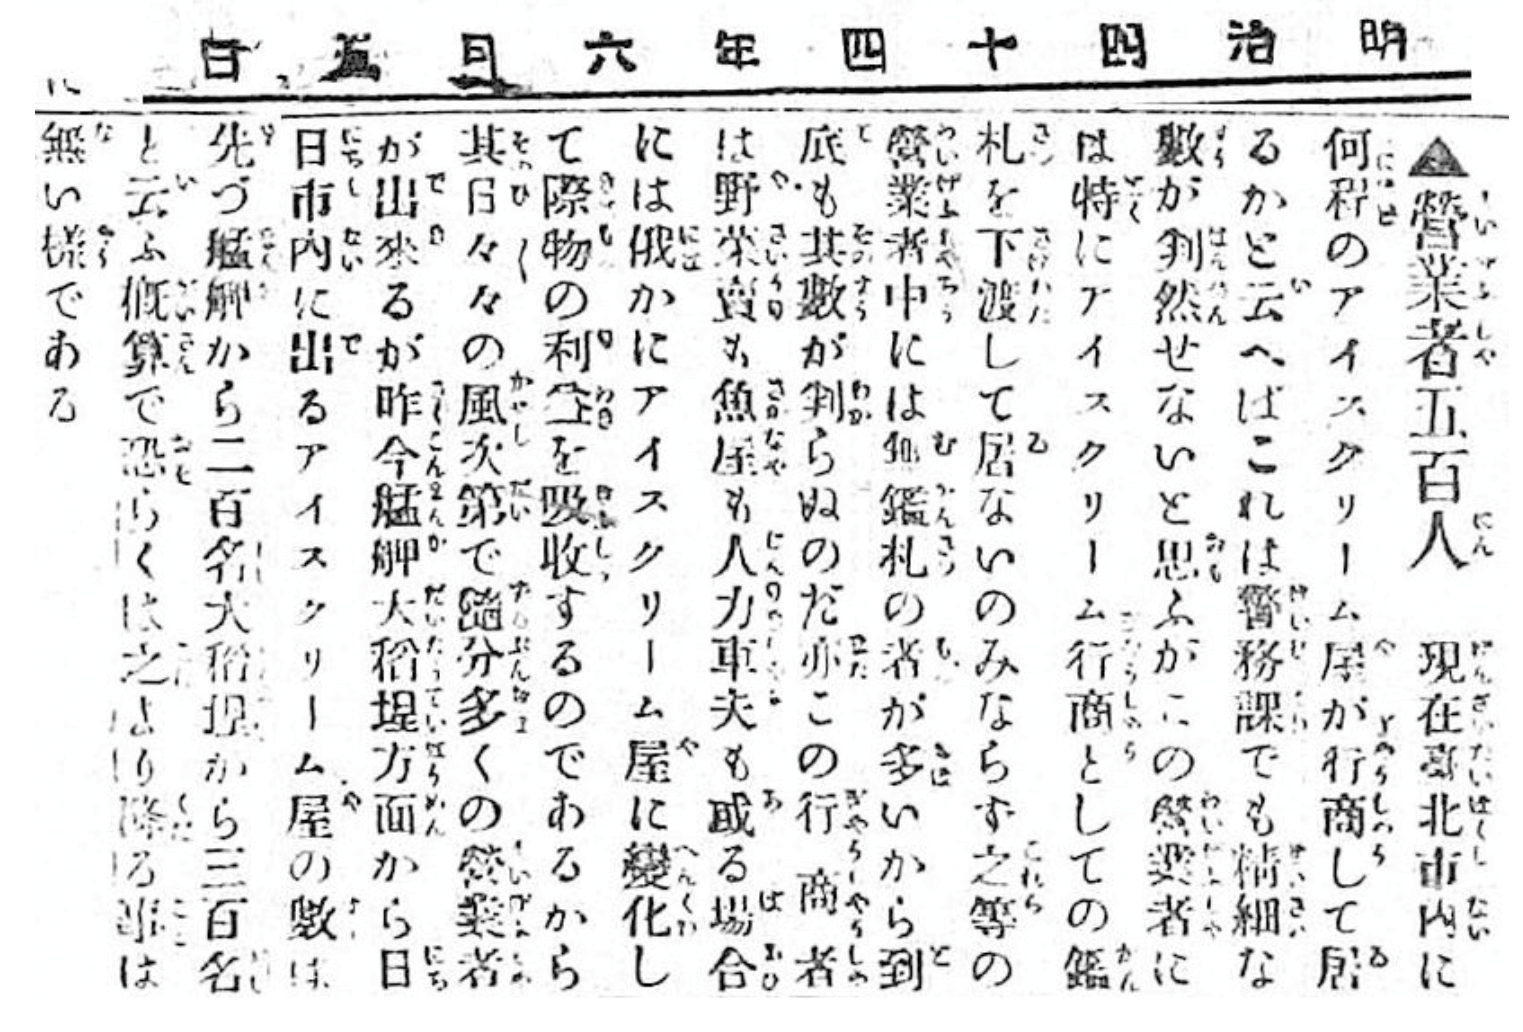 明治四十四年六月五日
▲營業者五百人 現在臺北市內に
何程のアイスクリーム屋が行商して居
るかと云へばこれは警務課でも精細な
數が判然せないと思ふがこの營業者に
は特にアイスクリーム行商としての鑑
札を下渡して居ないのみならず之等の
營業者中には無鑑札の者が多いから到
底も其數が判らぬのだ亦この行商者
は野菜賣も魚屋も人力車夫も或る場合
には俄かにアイスクリーム屋に變化し
て際物の利益を吸收するのであるから
其日々々の風次第で隨分多くの營業者
が出來るが昨今艋舺大稻埕方面から日
日市內に出るアイスクリーム屋の數は
先づ艋舺から二百名大稻埕から三百名
と云ふ概算で恐らくは之より降る事は
無い樣である